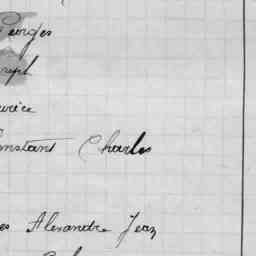 Georges
urice
onstant Charles
es Alexandre Jean